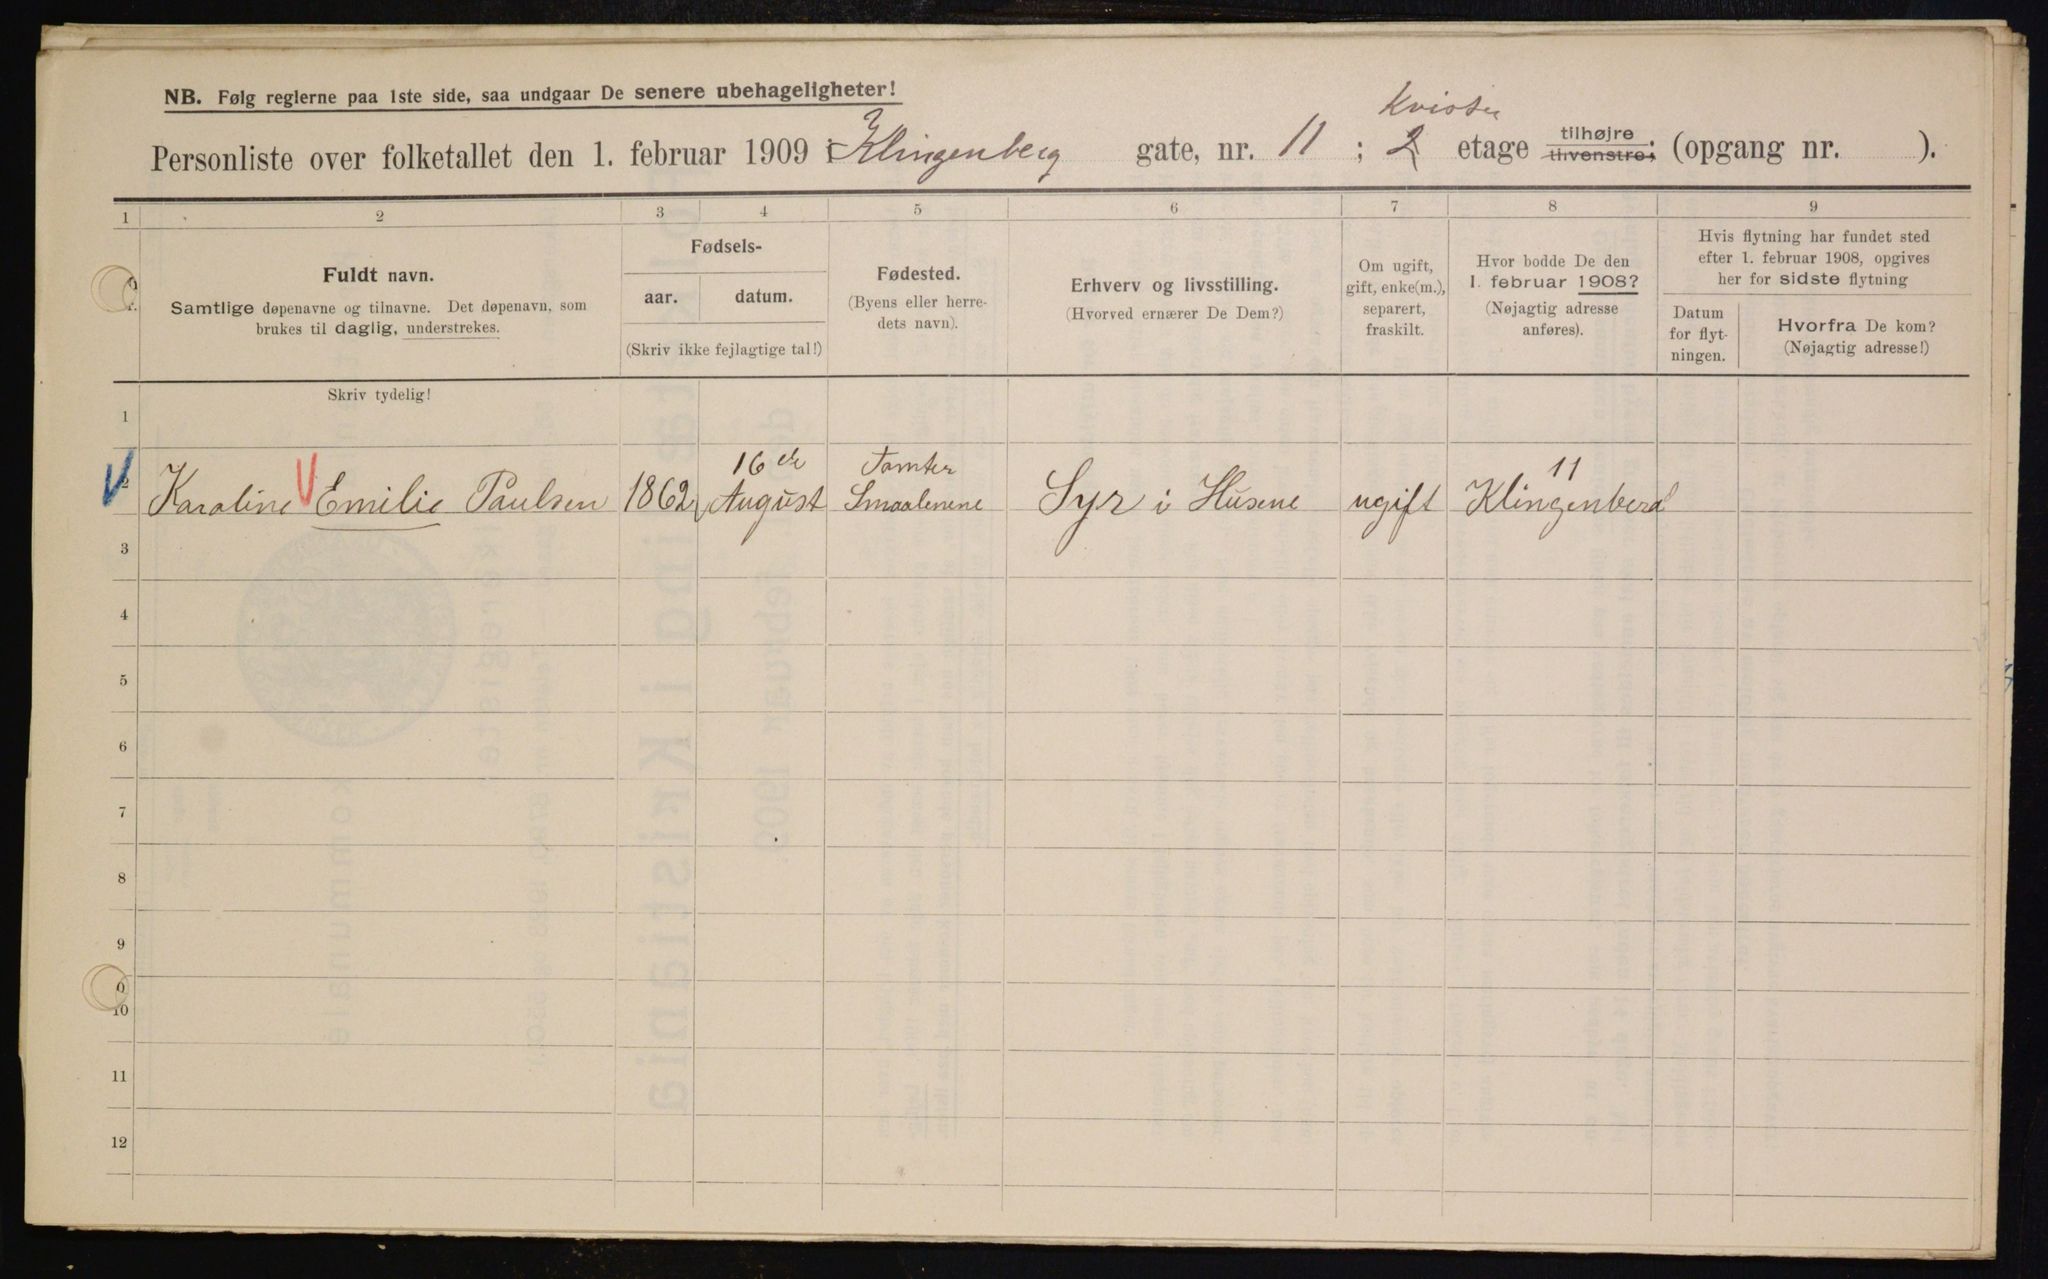 NB. Følg reglerne paa 1ste side, saa undgaar De senere ubehageligheter!
Kvisten
Personliste over folketallet den 1. februar 1909 i Klingenberg gate, nr. 11 ; 2 etage tilhøjre tilvenstre; (opgang nr. ).
1 2 3 4 5 6 7 8 9
Fuldt navn.
Samtlige døpenavne og tilnavne. Det døpenavn, som
brukes til daglig, understrekes.
Fødsels-
aar. datum.
(Skriv ikke fejlagtige tal!)
Fødested.
(Byens eller herre-
dets navn).
Erhverv og livsstilling.
(Hvorved ernærer De Dem?)
Om ugift,
gift, enke(m.),
separert,
fraskilt.
Hvor bodde De den
1. februar 1908?
(Nøjagtig adresse
anføres).
Hvis flytning har fundet sted
efter 1. februar 1908, opgives
her for sidste flytning
Datum
for flyt-
ningen.
Hvorfra De kom?
(Nøjagtig adresse!)
Skriv tydelig!
1
16de Tomter 11
2 Karoline Emilie Paulsen 1862 August Smaalenene Syr i Husene ugift Klingenberg
3
4
5
6
7
8
9
10
11
12